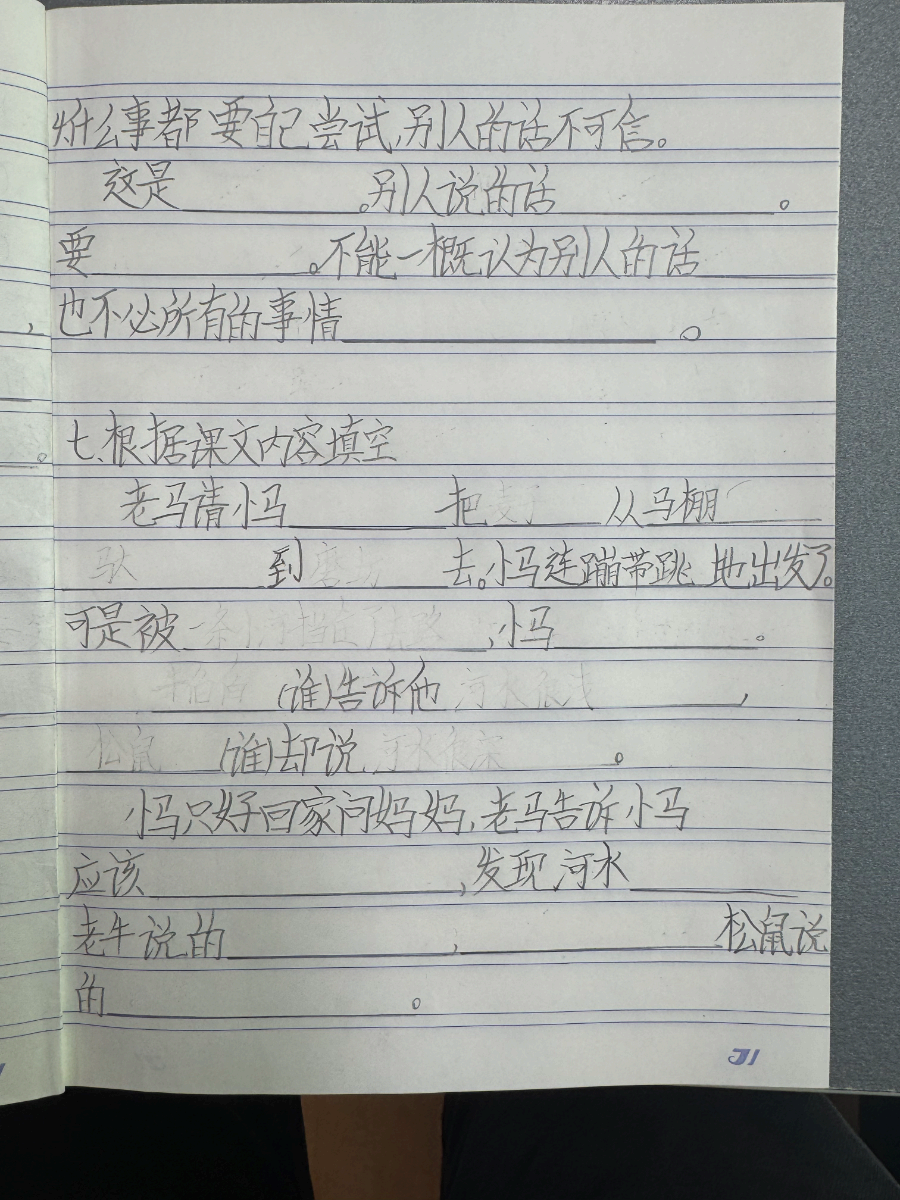 什么事都要自己尝试,别人的话不可信。
这是______。别人说的话______。
要______。不能一概认为别人的话______
也不必所有的事情______。
七、根据课文内容填空
老马请小马______把麦子______从马棚______
驮______到磨坊______去。小马连蹦带跳地出发了。
可是被一条小河挡住了去路______,小马______。
______(谁)告诉他河水很浅______,
松鼠______(谁)却说河水很深______。
小马只好回家问妈妈,老马告诉小马
应该______,发现河水______
老牛说的______,______松鼠说
的______。
31